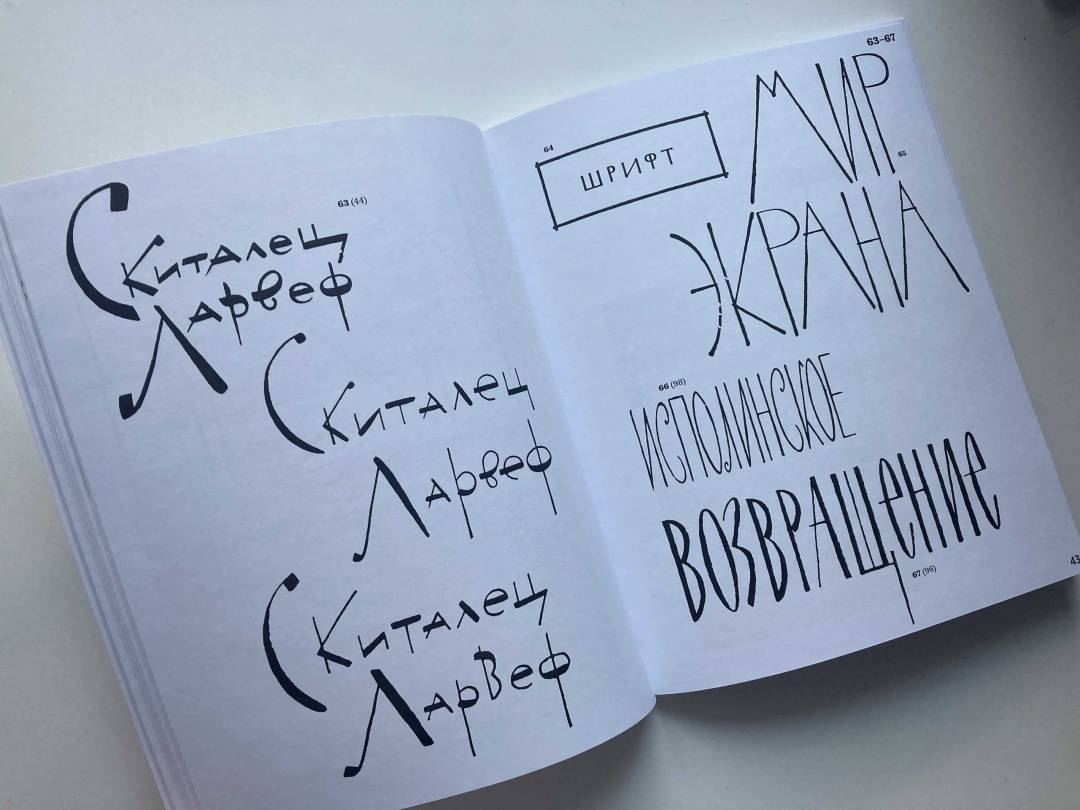 63 (44)
Скиталец
Ларвеф
Скиталец
Ларвеф
Скиталец
ЛарВеф
63–67
64
ШРИФТ
МИР
65
ЭКРАНА
66 (98)
ИСПОЛИНСКОЕ
ВОЗВРАЩЕНИЕ
67 (96)
43